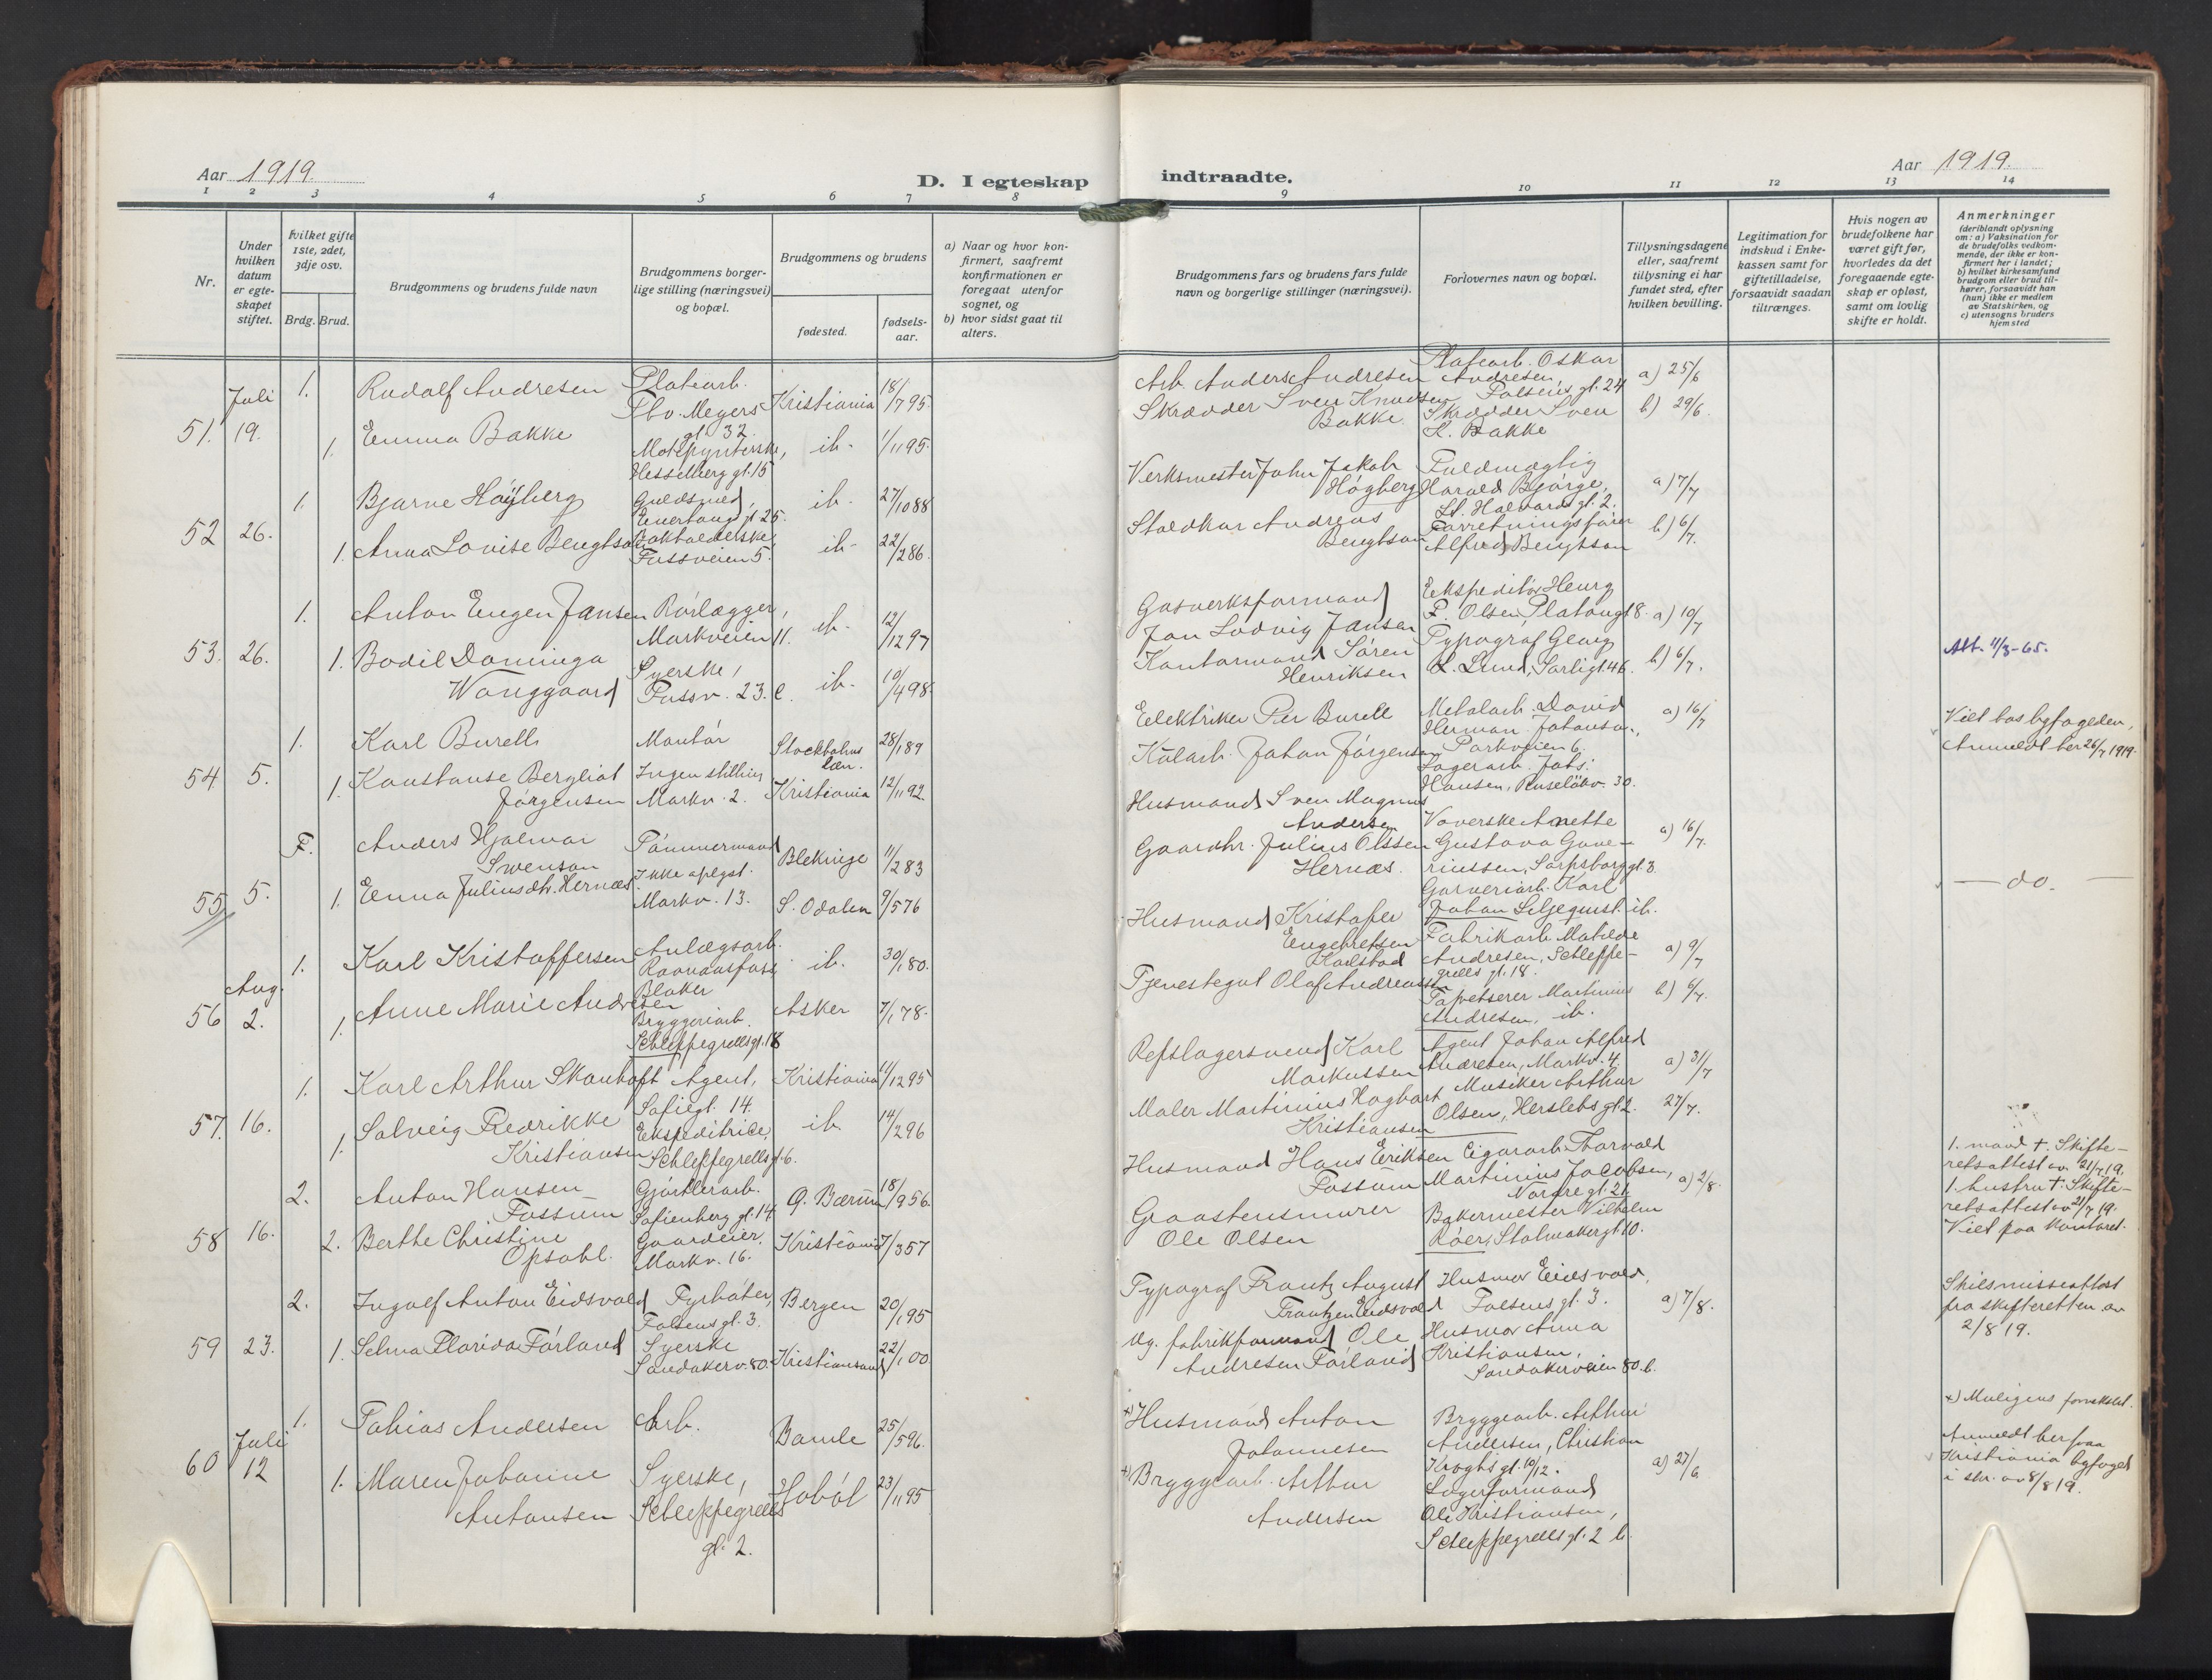 Aar 1919.
D. I egteskap indtraadte.
Aar 1919.
1 2 3 4 5 6 7 8 9 10 11 12 13 14
Nr.
Under hvilken datum er egteskapet stiftet.
Hvilket gifte 1ste, 2det, 3dje osv.
Brdg. Brud.
Brudgommens og brudens fulde navn
Brudgommens borgerlige stilling (næringsvei) og bopæl.
Brudgommens og brudens
fødested.
fødselsaar.
a) Naar og hvor konfirmert, saafremt konfirmationen er foregaat utenfor sognet, og
b) hvor sidst gaat til alters.
Brudgommens fars og brudens fars fulde navn og borgerlige stillinger (næringsvei).
Forlovernes navn og bopæl.
Tillysningsdagene eller, saafremt tillysning ei har fundet sted, efter hvilken bevilling.
Legitimation for indskud i Enkekassen samt for giftetilladelse, forsaavidt saadan tiltrænges.
Hvis nogen av brudefolkene har været gift før, hvorledes da det foregaaende egteskap er opløst, samt om lovlig skifte er holdt.
Anmerkninger
(deriblandt oplysning om: a) Vaksination for de brudefolks vedkommende, der ikke er konfirmert her i landet;
b) hvilket kirkesamfund brudgom eller brud tilhører, forsaavidt han (hun) ikke er medlem av Statskirken, og
c) utensogns bruders hjemsted
51. Juli 19.
1. Rudolf Andresen Platearb. Thv. Meyers gt. 32 Kristiania 18/7 95.
1. Emma Bakke Motepynterske, Hesselberg gt. 15 ib. 1/11 95.
Arb. Anders Andresen
Skrædder Sven Knudsen Bakke
Platearb. Oskar Andresen, Falsens gt. 24
Skrædder Sven K. Bakke
a) 25/6
b) 29/6.
52 26.
1. Bjarne Høyberg Guldsmed, Enerhaugt. 25. ib. 27/10 88
1. Anna Lovise Bengtson Bokholderske Fossveien 5. ib. 22/2 86.
Verksmester John Jakob Høgberg
Staldkar Andreas Bengtson
Fuldmægtig Harald Bjørge, St. Halvards gt. 2.
Forretningsfører Alfred Bengtson
a) 7/7
b) 6/7.
53. 26.
1. Anton Eugen Jansen Rørlægger, Markveien 11. ib. 12/12 97
1. Bodil Dominga Wanggaard Syerske, Fossv. 23. c. ib. 10/4 98.
Gasverksformand Jan Ludvig Jansen
Kontormand Søren Henriksen
Ekspeditør Henry F. Olsen, Platougt 8.
Typograf Georg L. Lund, Sarsgt. 46.
a) 10/7
b) 6/7.
Att. 11/3-65.
54 5.
1. Karl Burell Montør Stockholms län. 28/1 89
1. Konstanse Bergliot Jørgensen Ingen stilling Markv. 2. Kristiania 12/11 92.
Elektriker Per Burell
Kularb. Johan Jørgensen
Metalarb. David Herman Johanson, Parkveien 6.
Lagerarb. Johs. Hansen, Ruseløkv. 30.
a) 16/7
Viet hos byfogden,
Anmeldt her 26/7 1919.
55 5.
F. Anders Hjalmar Swenson Tømmermand Blekinge 11/2 83
1. Emma Juliusdtr. Hernæs. Ikke opgit. Markv. 13. S. Odalen 9/5 76
Husmand Sven Magnus Andersen
Gaardbr. Julius Olssen Hernæs.
Vaverske Anette Gustava Gaveriussen, Sarpsborg gt. 3.
Garveriarb. Karl Johan Liljequist. ib.
a) 16/7.
— do. —
56 Aug. 2.
1. Karl Kristoffersen Anlægsarb. Raanaasfoss Blaker ib. 30/1 80.
1. Anne Marie Andresen Bryggeriarb. Schleppegrellsgt. 18 Asker 7/1 78.
Husmand Kristofer Engebretsen Karlstad
Tjenestegut Olaf Andreassen
Fabrikarb. Matilde Andresen, Schleppegrells gt. 18.
Tapetserer Martinius Andresen, ib.
a) 9/7
b) 6/7.
57. 16.
1. Karl Arthur Skauhoft Agent, Sofiegt. 14. Kristiania 11/12 95
1. Solveig Fredrikke Kristiansen Ekspeditrice, Schleppegrellsgt. 6. ib. 14/2 96
Repslagersvend Karl Markussen
Maler Martinius Hagbart Kristiansen
Agent Johan Alfred Andresen, Markv. 4.
Musiker Arthur Olsen, Herslebs gt. 2.
a) 31/7
27/7.
58 16.
2. Anton Hansen Fossum Gjørtlerarb. Sofienberg gt. 14 Ø. Bærum 18/9 56.
2. Berthe Christine Opsahl. Gaardeier, Markv. 16. Kristiania 7/3 57
Husmand Hans Eriksen Fossum
Graastensmurer Ole Olsen
Cigararb. Thorvald Martinius Jacobsen, Nordre gt. 21
Bakermester Vilhelm Røer, Stolmakergt. 10.
a) 2/8.
1. mand †. Skifteretsattest av 21/7 19.
1. hustru †. Skifteretsattest av 21/7 19.
Viet paa kontoret.
59 23.
2. Ingolf Anton Eidsvold Fyrbøter, Falsens gt. 3. Bergen 20/1 95
1. Selma Florida Førland Syerske Sandakerv. 80. Kristiansand 22/1 00
Typograf Frantz August Frantzen Eidsvold
Ug. fabrikformand Ole Andresen Førland
Husmor Eidsvold, Falsens gt. 3.
Husmor Anna Kristiansen, Sandakerveien 80. b.
a) 7/8.
Skilsmisseattest fra skifteretten av 2/8 19.
60 Juli 12
1. Tobias Andersen Arb. Bamle 25/5 96.
1. Maren Johanne Antonsen Syerske, Schleppegrells gt. 2. Hobøl 23/11 95
x) Husmand Anton Johannesen
x) Bryggearb. Arthur Andersen
Bryggearb. Arthur Andersen, Christian Kroghs gt. 10/12.
Lagerformand Ole Kristiansen, Schleppegrells gt. 2 b.
a) 27/6
x) Muligens forvekslet.
Anmeldt her fra Kristiania byfoged i skr. av 8/8 19.